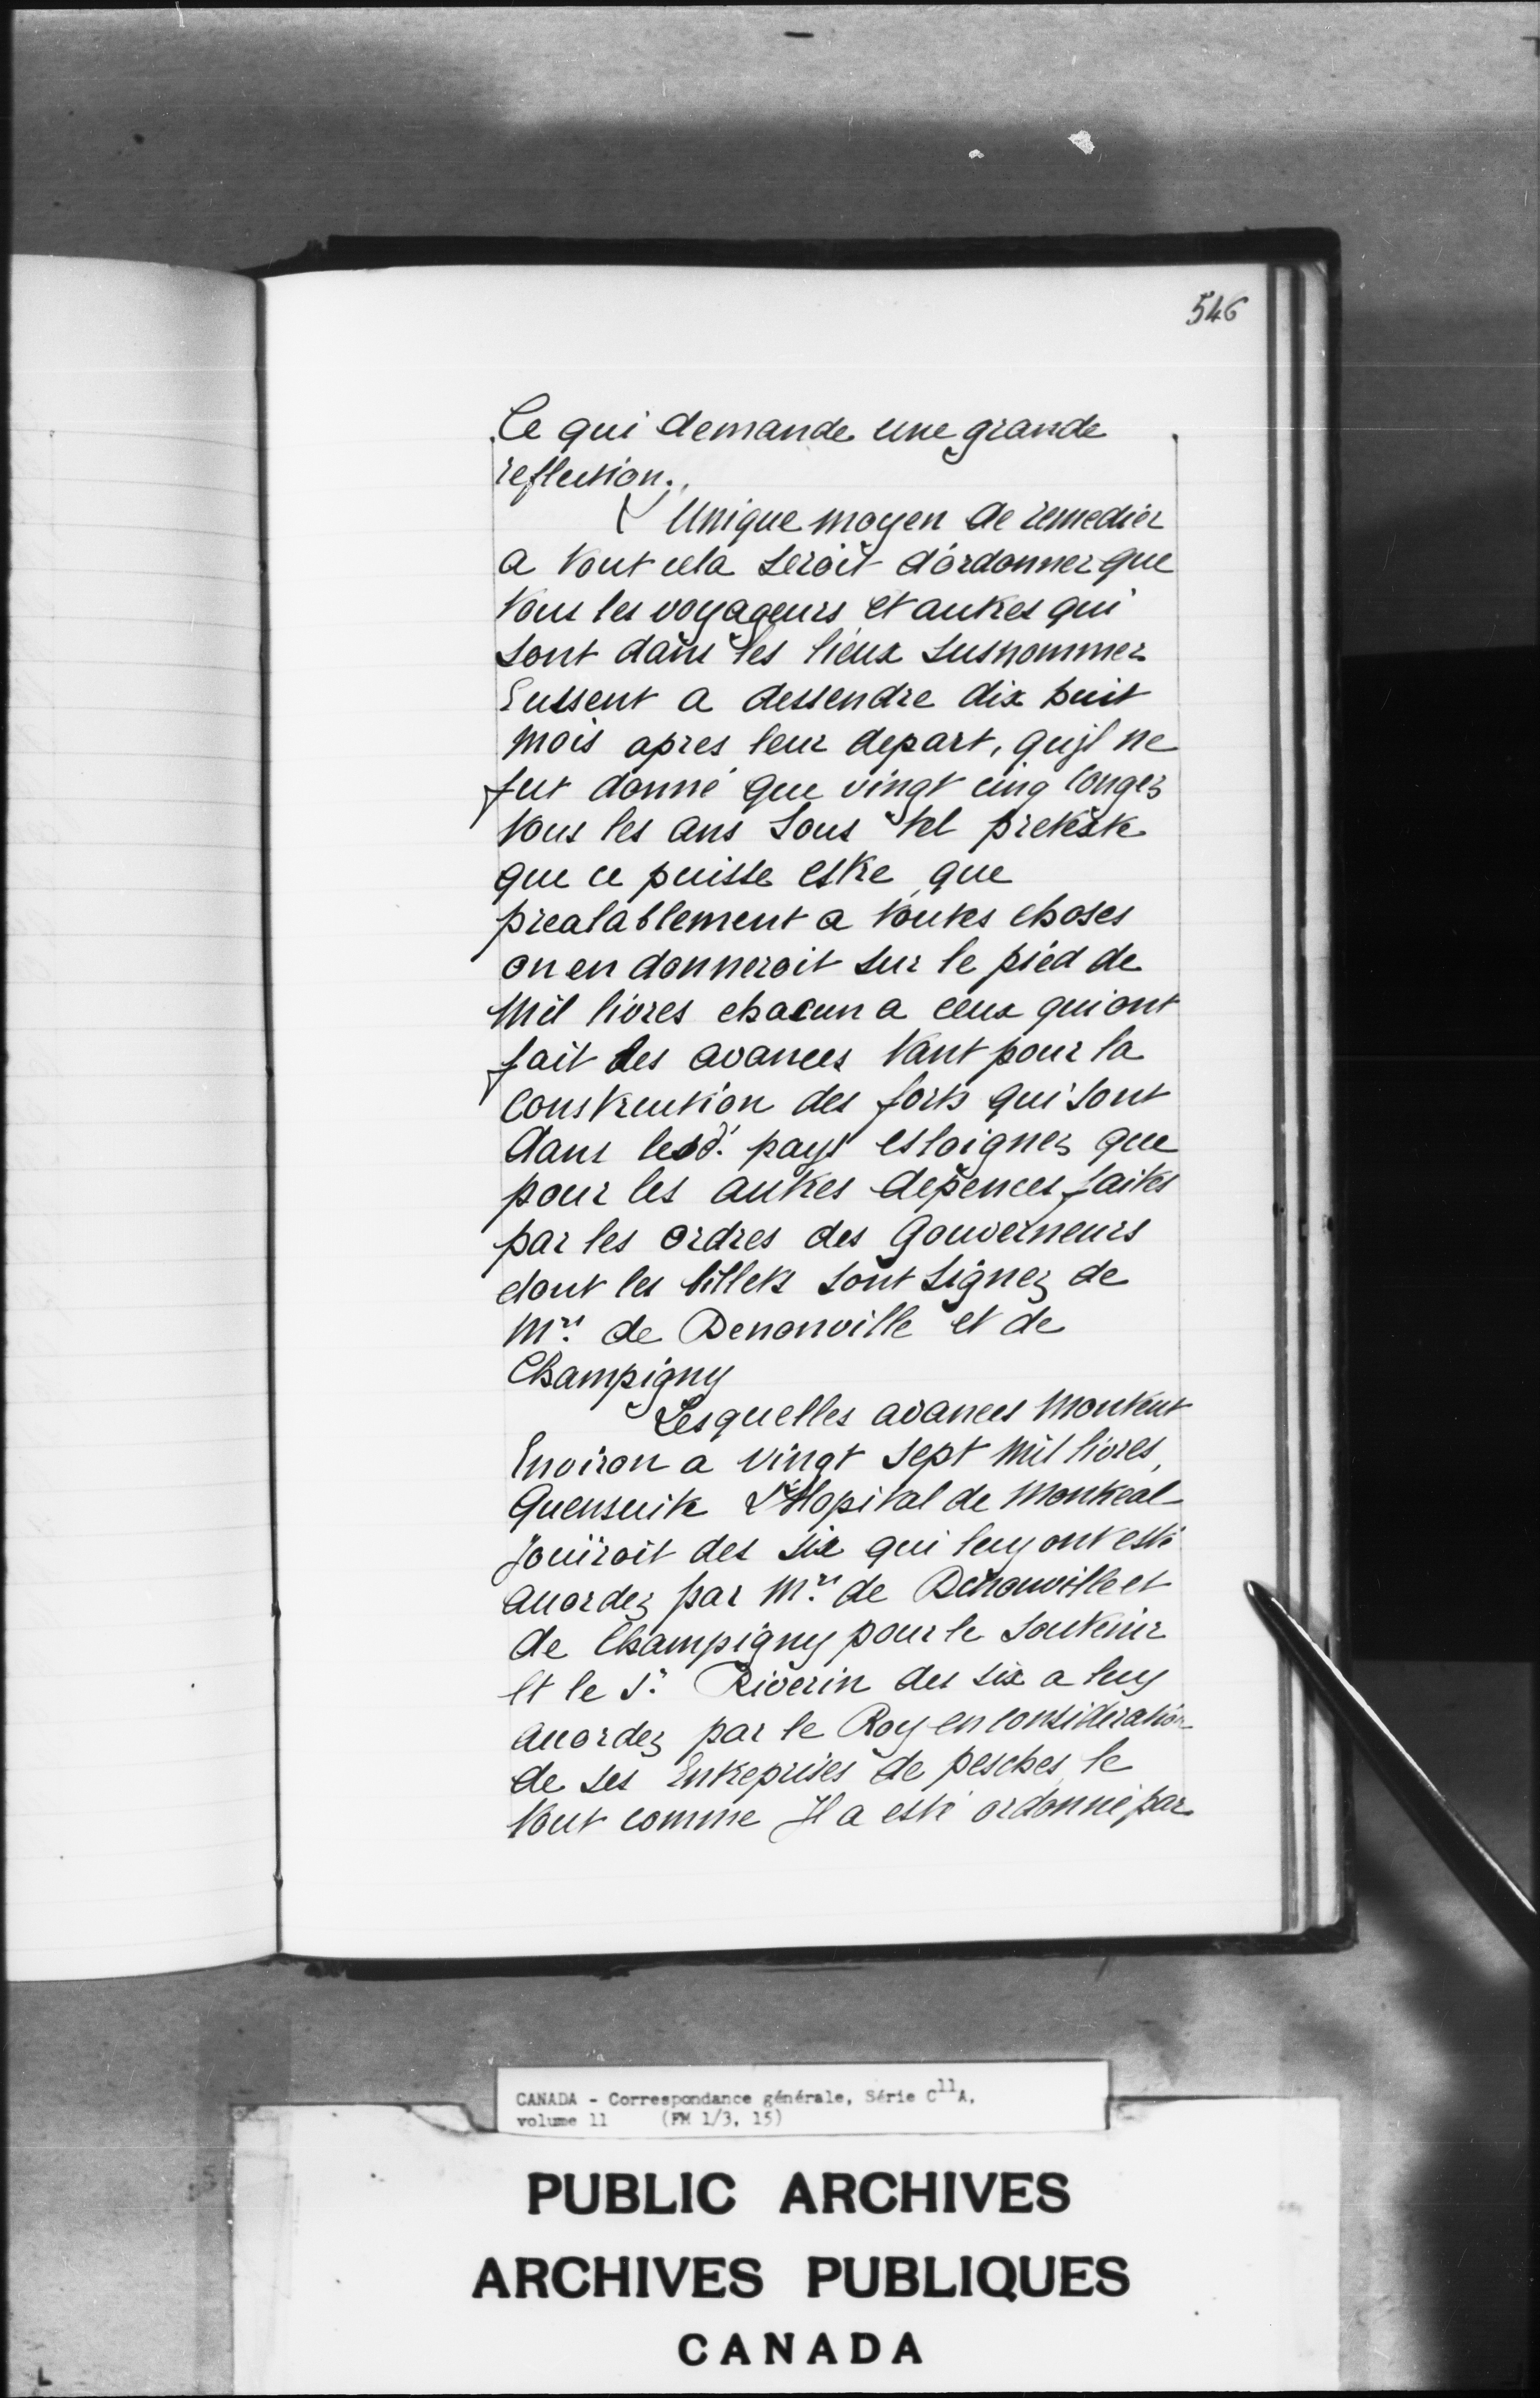 546
Ce qui demande une grande
reflection.
L'Unique moyen de remedier
a tout cela seroit d'ordonner que
tous les voyageurs et autres qui
sont dans les lieux susnommez
Eussent a dessendre dix huit
mois apres leur depart, qu'jl ne
fut donné que vingt cinq Congez
tous les ans sous tel pretexte
que ce puisse estre, que
prealablement a toutes choses
on en donneroit sur le pied de
Mil livres chacun a ceux qui ont
fait les avances tant pour la
Construction des forts qui sont
dans lesd. pays esloignez que
pour les autres depences faites
par les ordres des Gouverneurs
dont les billets sont signez de
Mrs. de Denonville et de
Champigny
Lesquelles avances montent
Environ a vingt sept mil livres,
Quensuite L'Hopital de Montreal
Jouiroit des six qui luy ont esté
accordez par Mrs. de Denonville et
de Champigny pour le soutenir
Et le Sr. Riverin des six a luy
accordez par le Roy en consideration
de ses Entreprises de pesches, le
tout comme Il a esté ordonné par
CANADA - Correspondance générale, Série C11A,
volume 11 (FM 1/3, 15)
PUBLIC ARCHIVES
ARCHIVES PUBLIQUES
CANADA